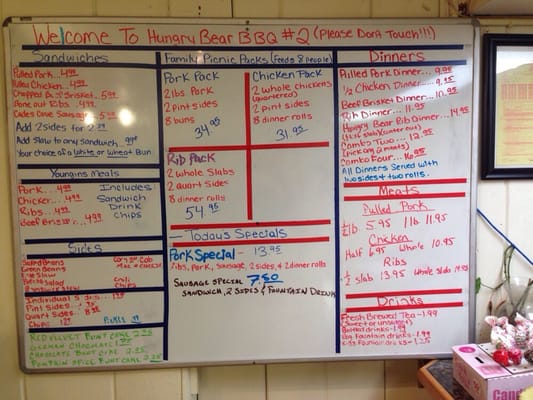 Welcome To Hungry Bear BBQ #2 (Please Don't Touch!!!)
Sandwiches
Pulled Pork... 4.99
Pulled Chicken... 4.99
Chopped Beef Brisket... 5.99
Bone out Ribs... 4.99
Cades Cove Sausage... 5.99
Add 2 sides for 2.99
Add Slaw to any Sandwich... 99¢
Your choice of a White or Wheat Bun
Youngins Meals
Pork... 4.99
Chicken... 4.99
Ribs... 4.99
Beef Brisket... 4.99
Includes
Sandwich
Drink
Chips
Sides
Baked Beans
Green Beans
Slaw
Potato Salad
Corn Cob
Mac + Cheese
Chili
Chips
Individual Sides...
Pint Sides...
Quart Sides...
Chips
Pickle
Red Velvet Bunt Cake 2.25
German Chocolate
Chocolate Bunt Cake 2.25
Pumpkin Spice Bunt Cake 2.25
Family Picnic Packs (Feeds 8 people)
Pork Pack
2 lbs Pork
2 pint sides
8 buns
34.95
Chicken Pack
2 whole chickens
(quartered)
2 pint sides
8 dinner rolls
31.95
Rib Pack
2 whole Slabs
2 quart Sides
8 dinner rolls
54.95
Todays Specials
Pork Special - 13.95
Ribs, Pork, Sausage, 2 sides, & 2 dinner rolls
Sausage Special 7.50
Sandwich, 2 Sides & Fountain Drink
Dinners
Pulled Pork Dinner... 9.95
½ Chicken Dinner... 9.95
Beef Brisket Dinner... 10.95
Rib Dinner... 11.95
Hungry Bear Rib Dinner... 14.95
Combo Two... 12.95
(pick any 2 meats)
Combo Four... 16.95
All Dinners Served with
two sides & two rolls.
Meats
Pulled Pork
½ lb 5.95 1 lb 11.95
Chicken
Half 6.95 Whole 10.95
Ribs
½ slab 13.95 Whole Slab 19.95
Drinks
Fresh Brewed Tea - 1.99
(Sweet or unsweet)
Bottled drinks - 1.99
Fountain drinks - 1.99
Kids Fountain drinks - 1.25